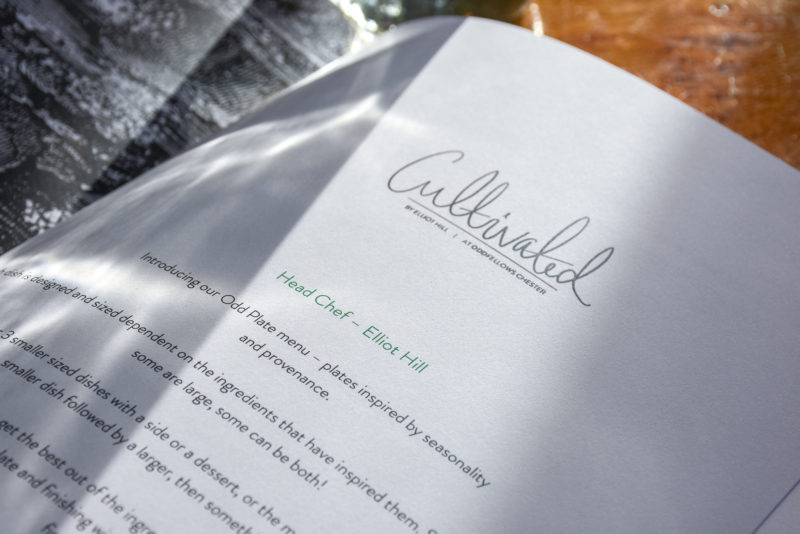 Cultivated
BY ELLIOT HILL | AT ODDFELLOWS CHESTER
Head Chef – Elliot Hill
Introducing our Odd Plate menu – plates inspired by seasonality
and provenance.
dish is designed and sized dependent on the ingredients that have inspired them,
some are large, some can be both!
3 smaller sized dishes with a side or a dessert, or the
smaller dish followed by a larger, then
get the best out of the
and finishing